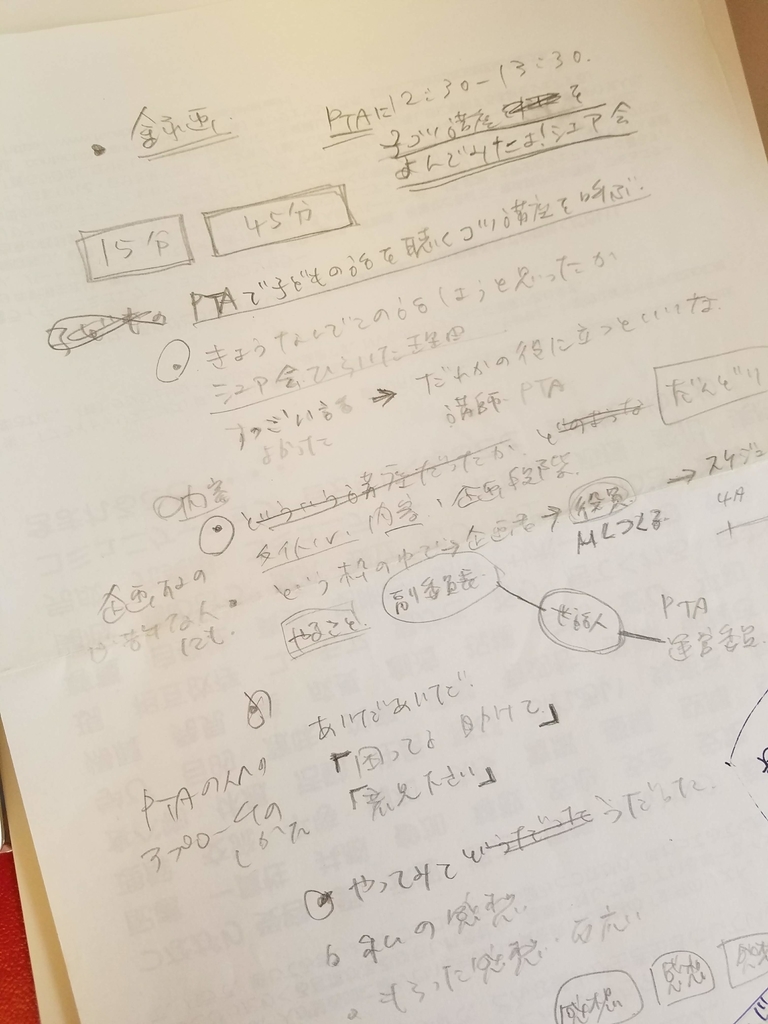 PTAに12:30-13:30.
よんでみたよ!シェア会
15分 45分
PTAで子どもの話を聴くコツ講座を呼ぶ.
きょうなんでこの話しようと思ったか
シェア会ひらいた理由
すっごい → だれかの役に立つといいな
よかった 講師 PTA
だんどり
○内容
どういう講座だったか
タイトル. 内容.
という枠の中で→企画書→役員→スケジュ
Mしてつくる 4月
企画
苦手な人にも.
やること 副委員長 世話人 PTA
運営委員
あいだあいだで.
PTAの人への 「困ってる 助けて」
アプローチの 「意見下さい」
しかた
やってみてどうだった うだった.
私の感想.
もらった感想・反応
感想 感想 感想